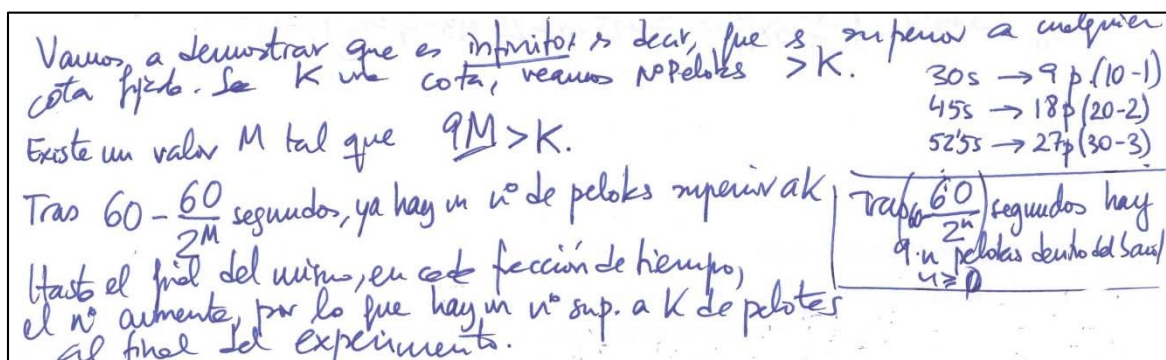 Vamos a demostrar que es infinito, es decir, que es superior a cualquier
cota fijada. Sea K una cota, veamos nºPelotas > K.
30s → 9 p.(10-1)
45s → 18p(20-2)
52'5s → 27p(30-3)
Existe un valor M tal que 9M > K.
Tras 60 - 60/2^M segundos, ya hay un nº de pelotas superior a K
Hasta el final del mismo, en cada fracción de tiempo,
el nº aumenta, por lo que hay un nº sup. a K de pelotas
al final del experimento.
Tras (60 - 60/2^n) segundos hay
9·n pelotas dentro del baúl
n ≥ 0